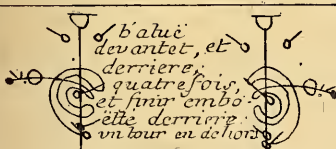 b'aluë
devantet, et
derriere,
quatre fois,
et finir embo-
ëtte derriere
vn tour en dehors